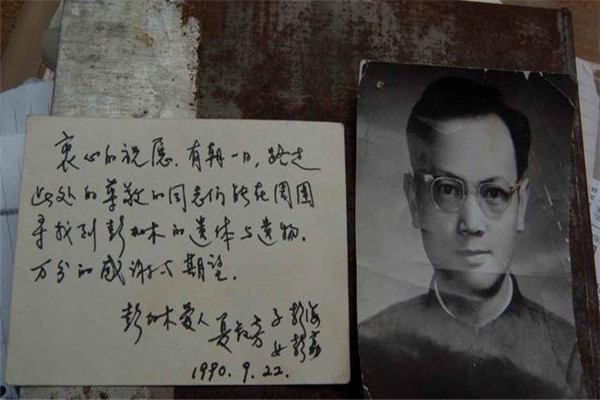 衷心的祝愿,有朝一日,路过
此处的尊敬的同志们能在周围
寻找到彭加木的遗体与遗物.
万分的感谢与期望.
彭加木爱人 夏叔芳 子 彭海
女 彭荔
1990.9.22.